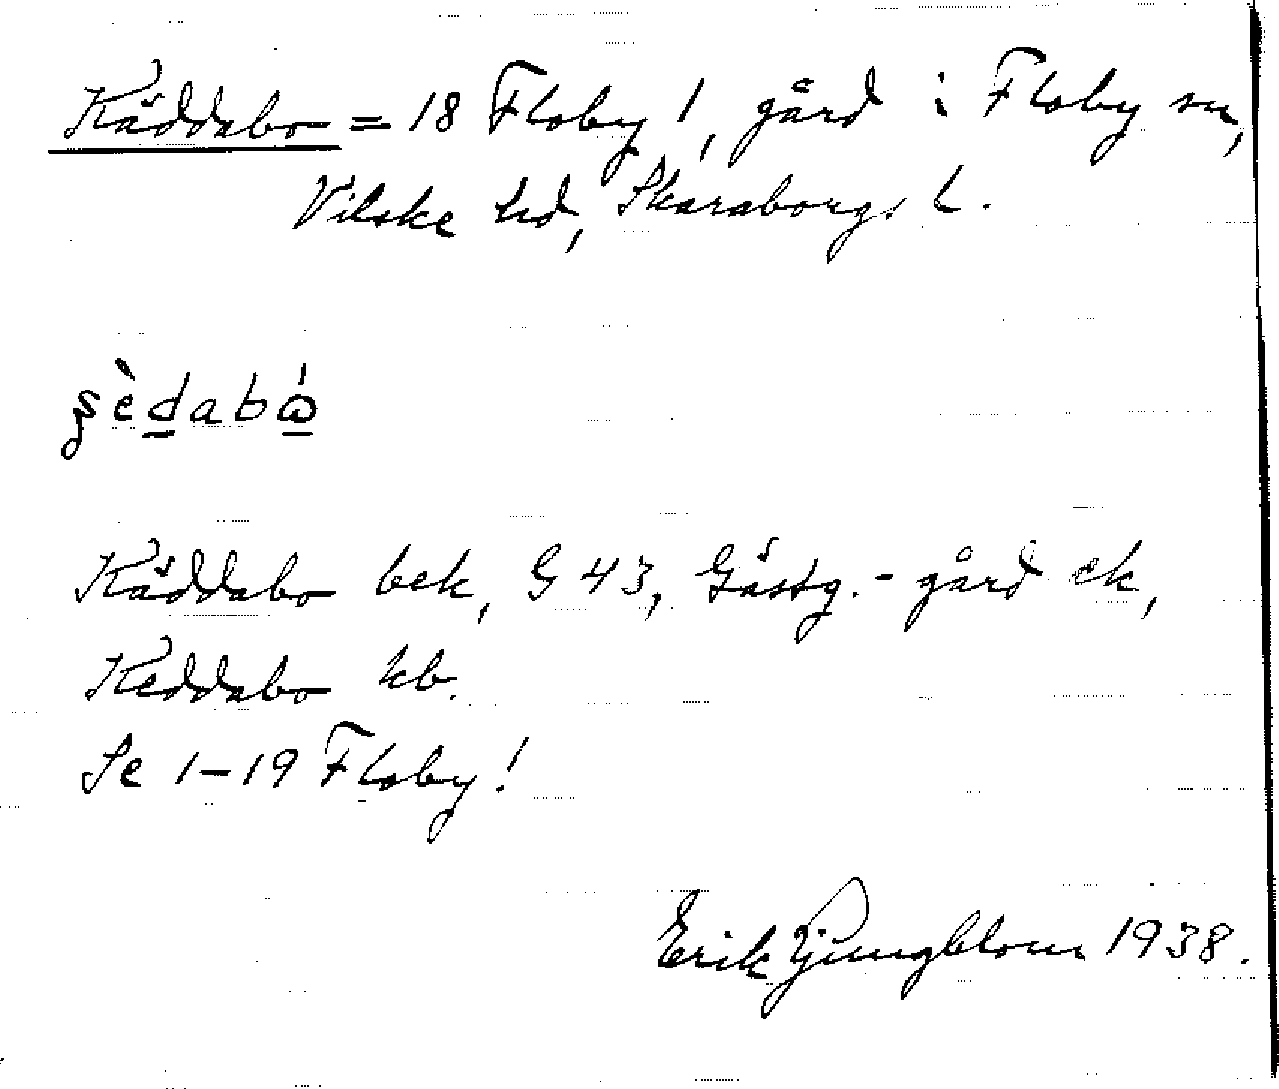 Käddabo = 18 Floby !, gård i Floby sn,
Vilske hd, Skaraborgs l.
Käddabo bek, G 43, Gästg.-gård ek,
Keddabo kb.
Se 1–19 Floby !
Erik Ljungblom 1938.